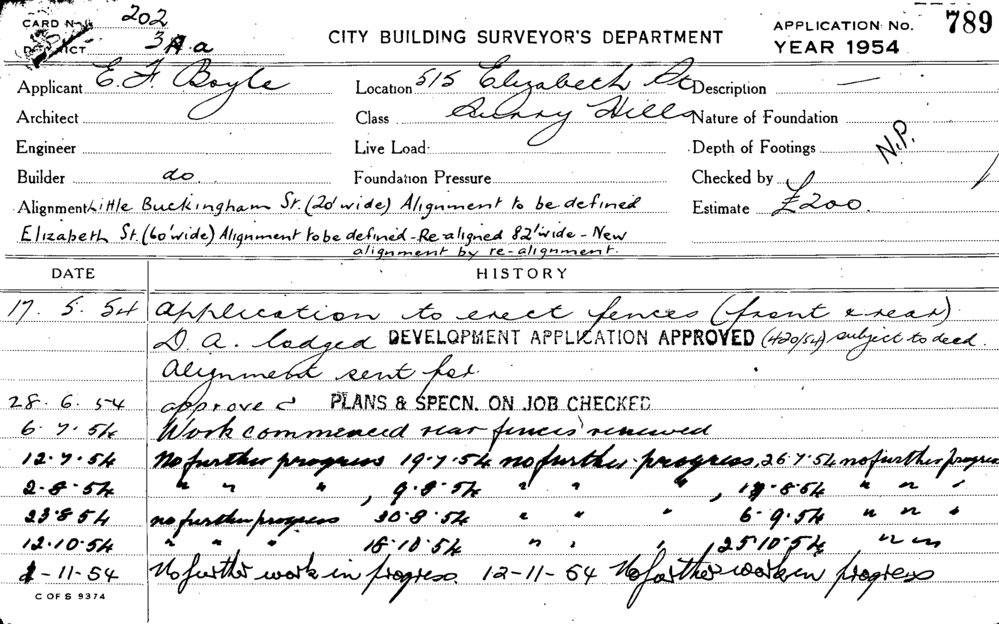 CARD No. 202
DISTRICT 3A.a
CITY BUILDING SURVEYOR'S DEPARTMENT
APPLICATION No. 789
YEAR 1954
Applicant E. F. Boyle Location 515 Elizabeth St Description —
Architect Class Surry Hills Nature of Foundation
Engineer Live Load: Depth of Footings N.P.
Builder do Foundation Pressure Checked by
Alignment Little Buckingham St. (20' wide) Alignment to be defined Estimate £200.
Elizabeth St. (60' wide) Alignment to be defined - Re-aligned 82' wide - New
alignment by re-alignment.
DATE HISTORY
17. 5. 54 Application to erect fences (front & rear)
D. A. lodged DEVELOPMENT APPLICATION APPROVED (420/54) subject to deed.
Alignment sent for
28. 6. 54 approved PLANS & SPECN. ON JOB CHECKED
6. 7. 54 Work commenced rear fences renewed
12.7.54 No further progress 19.7.54 no further progress, 26.7.54 no further progress
2.8.54 " " " , 9.8.54 " " " , 8.54 " " "
23.8.54 no further progress 30.8.54 " " " 6.9.54 " " "
12.10.54 " " " 18.10.54 " " " , 25.10.54 " " "
-11-54 No further work in progress. 12-11-54 No further work in progress
C OF S 9374